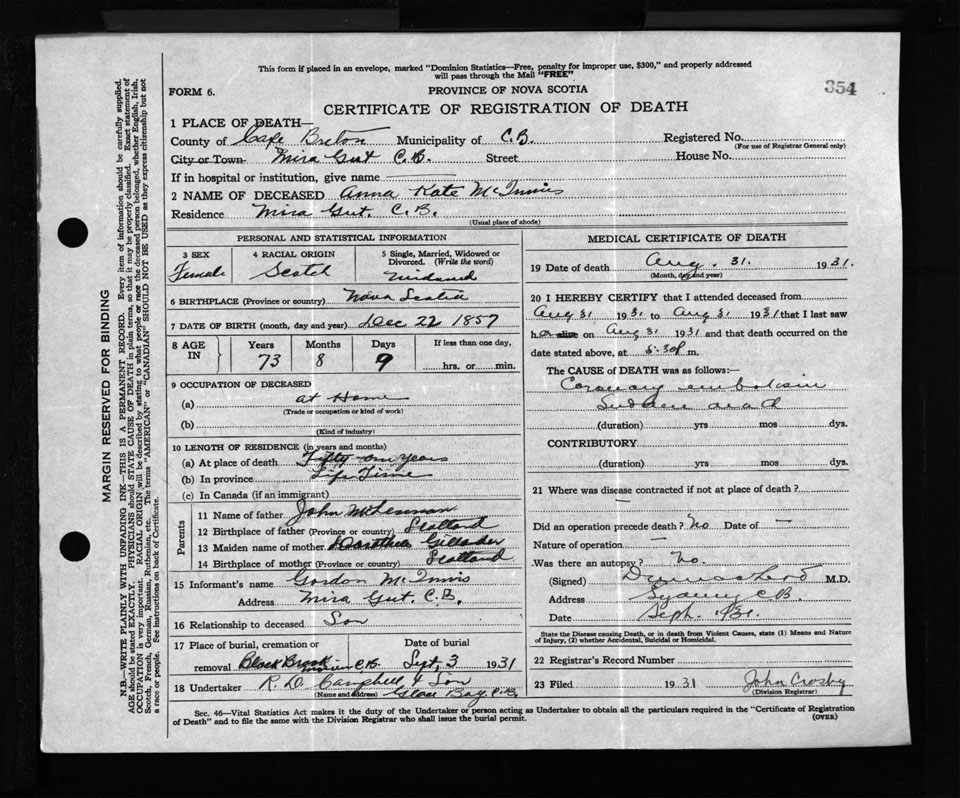 This form if placed in an envelope, marked "Dominion Statistics—Free, penalty for improper use, $300," and properly addressed
will pass through the Mail "FREE"
354
FORM 6.
PROVINCE OF NOVA SCOTIA
CERTIFICATE OF REGISTRATION OF DEATH
1 PLACE OF DEATH—
County of Cape Breton Municipality of C.B. Registered No.
(For use of Registrar General only)
City or Town Mira Gut C.B. Street House No.
If in hospital or institution, give name
2 NAME OF DECEASED Anna Kate McInnis
Residence Mira Gut. C.B.
(Usual place of abode)
PERSONAL AND STATISTICAL INFORMATION
3 SEX 4 RACIAL ORIGIN 5 Single, Married, Widowed or
Divorced. (Write the word)
Female Scotch
6 BIRTHPLACE (Province or country) Nova Scotia
7 DATE OF BIRTH (month, day and year) Dec 22 1857
8 AGE IN Years Months Days If less than one day,
73 8 9 hrs. or min.
9 OCCUPATION OF DECEASED
(a) at Home
(Trade or occupation or kind of work)
(b)
(Kind of industry)
10 LENGTH OF RESIDENCE (in years and months)
(a) At place of death Fifty one years
(b) In province Life Time
(c) In Canada (if an immigrant)
Parents
11 Name of father John McLennan
12 Birthplace of father (Province or country) Scotland
13 Maiden name of mother Dorothea
14 Birthplace of mother (Province or country) Scotland
15 Informant's name Gordon McInnis
Address Mira Gut. C.B.
16 Relationship to deceased Son
17 Place of burial, cremation or Date of burial
removal Black Brook C.B. Sept, 3 1931
18 Undertaker R. D. Campbell & Son
(Name and address) Glace Bay, C.B.
MEDICAL CERTIFICATE OF DEATH
19 Date of death Aug. 31. 1931.
(Month, day and year)
20 I HEREBY CERTIFY that I attended deceased from
Aug 31 1931 to Aug 31 1931 that I last saw
h alive on Aug 31 1931 and that death occurred on the
date stated above, at 6.30P m.
The CAUSE of DEATH was as follows:—
Coronary embolism
Sudden
(duration) yrs mos dys.
CONTRIBUTORY
(duration) yrs. mos. dys.
21 Where was disease contracted if not at place of death?
—
Did an operation precede death? No Date of —
Nature of operation —
Was there an autopsy? No.
(Signed) M.D.
Address Sydney C.B.
Date Sept. 1/31.
State the Disease causing Death, or in death from Violent Causes, state (1) Means and Nature
of Injury, (2) whether Accidental, Suicidal or Homicidal.
22 Registrar's Record Number
23 Filed 1931 John Crosby
(Division Registrar)
Sec. 46—Vital Statistics Act makes it the duty of the Undertaker or person acting as Undertaker to obtain all the particulars required in the "Certificate of Registration
of Death" and to file the same with the Division Registrar who shall issue the burial permit.
(OVER)
MARGIN RESERVED FOR BINDING
N.B.—WRITE PLAINLY WITH UNFADING INK—THIS IS A PERMANENT RECORD. Every item of information should be carefully supplied.
AGE should be stated EXACTLY. PHYSICIANS should STATE CAUSE OF DEATH in plain terms, so that it may be properly classified. Exact statement of
OCCUPATION is very important. RACIAL ORIGIN will be described by stating to what people or race the deceased person belonged, whether English, Irish,
Scotch, French, German, Russian, Ruthenian, etc. The terms "AMERICAN" or "CANADIAN" SHOULD NOT BE USED as they express citizenship but not
a race or people. See instructions on back of Certificate.